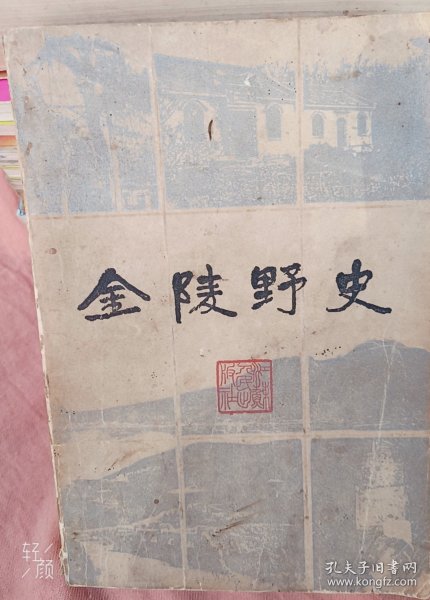 金陵野史
江苏
人民出
版社
轻颜
孔夫子旧书网
www.kongfz.com